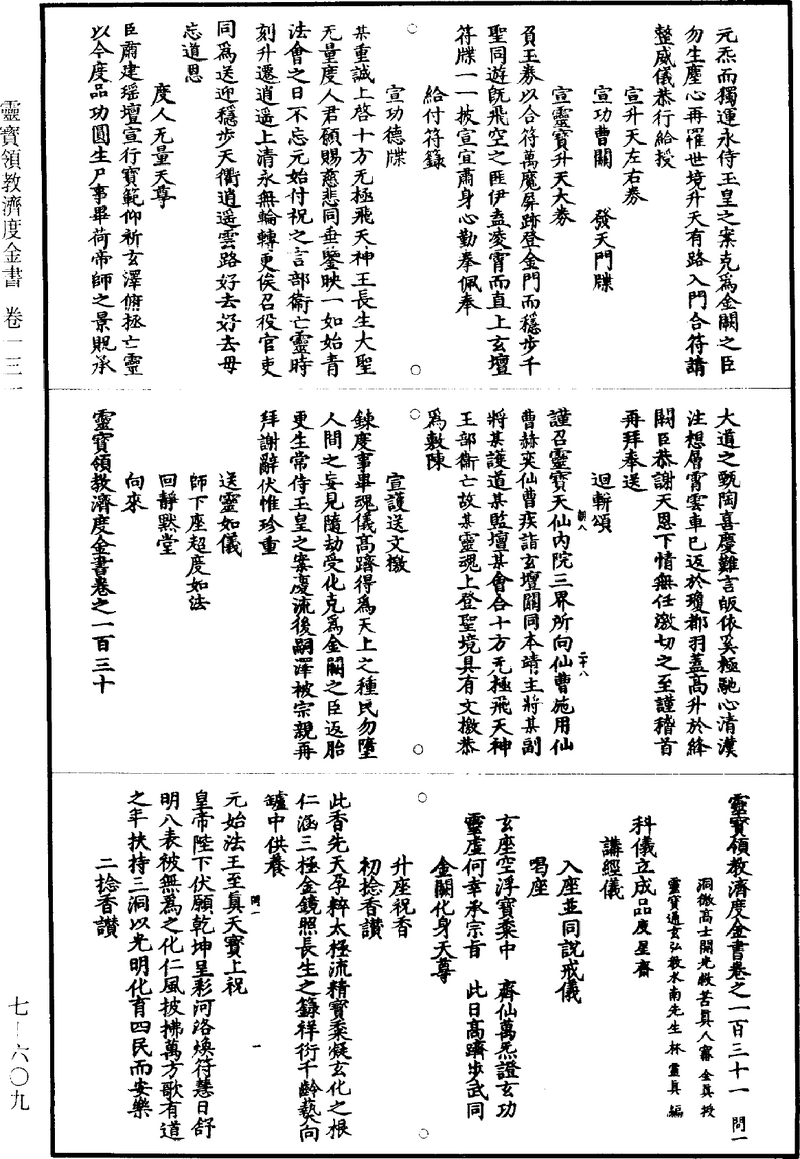 元炁而獨運永侍玉皇之案克爲金闕之臣
勿生塵心再罹世境升天有路入門合符請
整威儀恭行給授
宣升天左右券
宣功曹關　發天門牒
宣靈寶升天大券
負玉券以合符萬魔屏跡登金門而穩步千
聖同遊旣飛空之匪伊盍凌霄而直上玄壇
符牒一一披宣宜肅身心勤拳佩奉
給付符籙
宣功德牒
某重誠上啓十方无極飛天神王長生大聖
无量度人君願賜慈悲同垂鑒映一如始青
法會之日不忘元始付祝之言部衛亡靈時
刻升遷逍遥上清永無輪轉更俟召役官吏
同爲送迎穩步天衢逍遥雲路好去好去毋
忘道恩
度人无量天尊
臣肅建瑶壇宣行寶範仰祈玄澤俯拯亡靈
以今度品功圓生尸事畢荷帝師之景貺承
靈寶領教濟度金書　卷一三一
大道之甄陶喜慶難言皈依奚極馳心清漠
注想層霄雲車已返於瓊都羽蓋高升於絳
闕臣恭謝天恩下情無任激切之至謹稽首
再拜奉送
迴軿頌
謹召靈寶天仙內院三界所向仙曹施用仙
曹赫奕仙曹疾詣玄壇關同本靖主將某副
將某護道某監壇某會合十方无極飛天神
王部衛亡故某靈魂上登聖境具有文檄恭
爲敷陳
宣護送文檄
鍊度事畢魂儀高躋得爲天上之種民勿墮
人間之妄見隨劫受化克爲金闕之臣返胎
更生常侍玉皇之案慶流後嗣澤被宗親再
拜謝辭伏惟珍重
送靈如儀
師下座超度如法
回靜默堂
向來
靈寶領教濟度金書卷之一百三十
靈寶領教濟度金書卷之一百三十一　問一
洞微高士開光救苦眞人甯全真授
靈寶通玄弘教水南先生林靈真編
科儀立成品度星齋
講經儀
入座並同說戒儀
唱座
玄座空浮寶黍中　齊仙萬炁證玄功
靈虛何幸承宗旨　此日高躋步武同
金闕化身天尊
升座祝香
初捻香讚
此香先天孕粹太極流精寶黍凝玄化之根
仁涵三極金鏡照長生之籙祥衍千齡爇向
罏中供養
元始法王至眞天寶上祝
皇帝陛下伏願乾坤呈彩河洛煥符慧日舒
明八表被無爲之化仁風披拂萬方歌有道
之年扶持三洞以光明化育四民而安樂
二捻香讚
七-六〇九